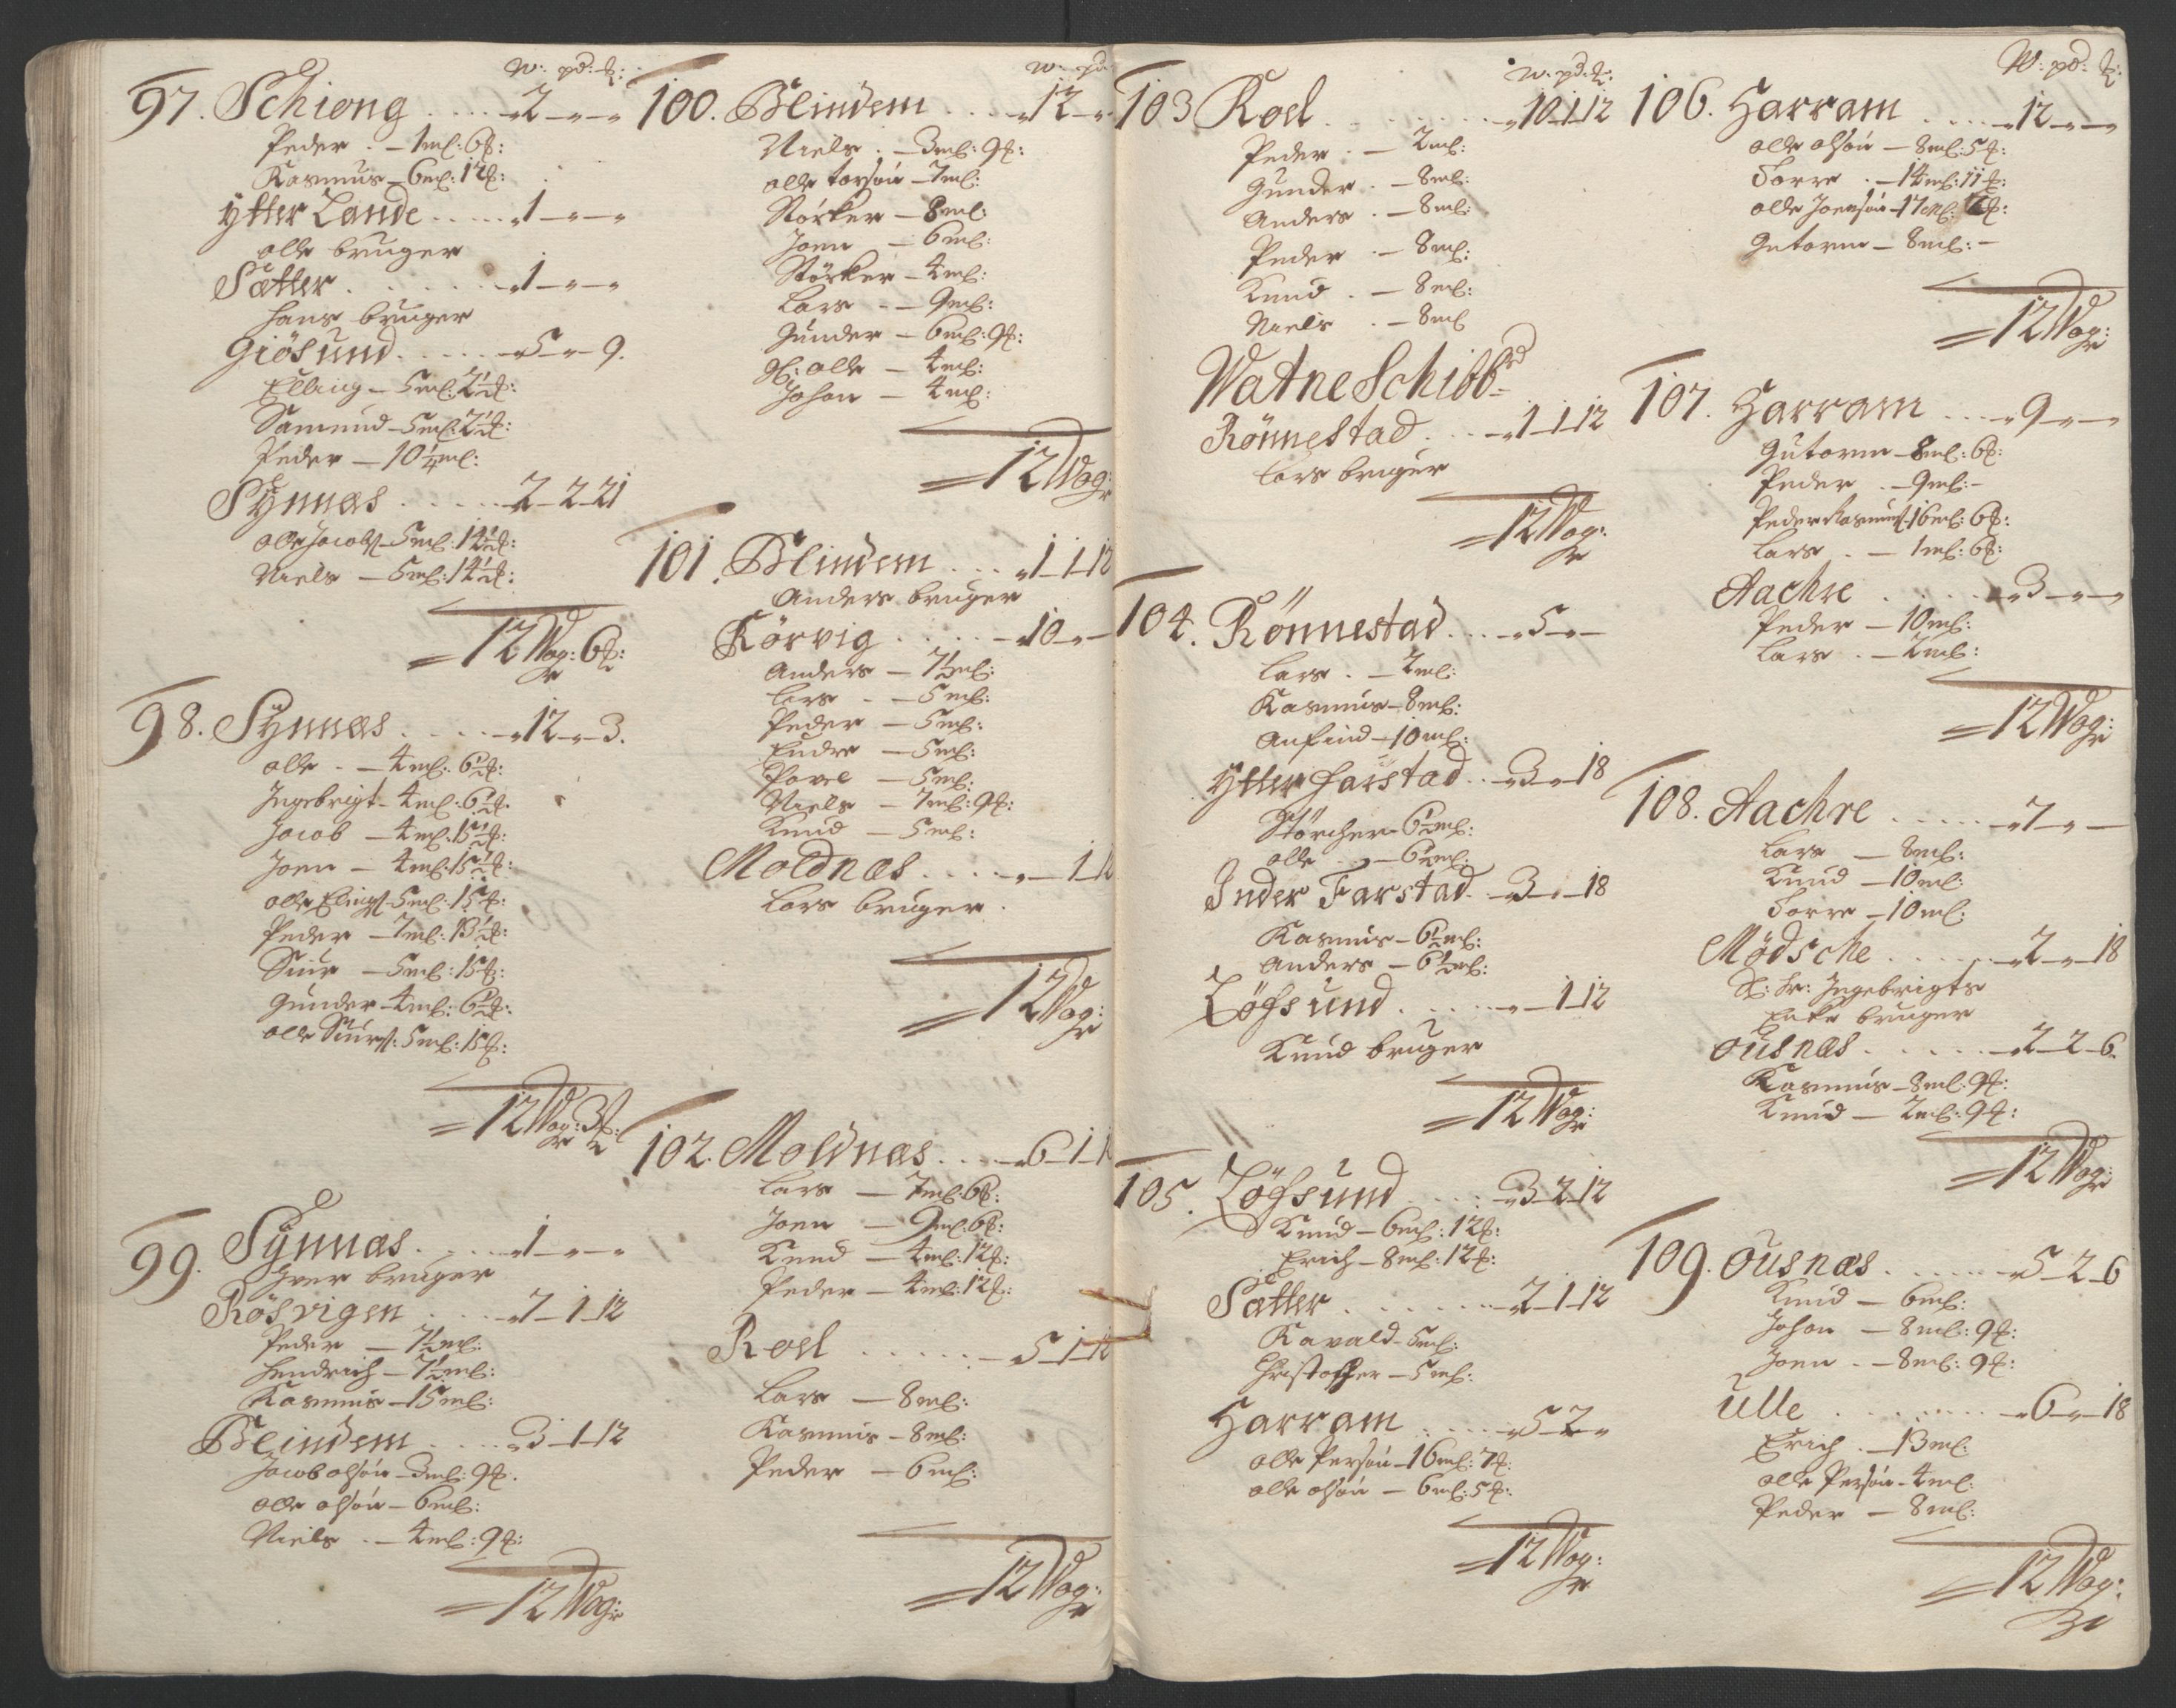 W: pd: ℔:
97. Schiong . . . . 2 – „ – „
Peder . – 1 mℓ: 6 ℔:
Rasmus – 6 mℓ: 12 ℔:
Ytter Lande . . . . . 1 – „ – „
olle bruger
Sætter . . . . . . 1 – „ – „
Hans bruger
Giösund . . . . . 5 – „ – 9.
Elling – 5 mℓ: 2½ ℔:
Samund – 5 mℓ: 2½ ℔:
Peder – 10¼ mℓ:
Synnæs . . . . . 2 – 2 – 21
olle Jacobs – 5 mℓ: 14½ ℔:
Niels – 5 mℓ: 14½ ℔:
= 12 Wog: 6 ℔:
98. Synnæs . . . . . 12 – „ – 3.
olle . – 4 mℓ: 6½ ℔:
Ingebrigt – 4 mℓ: 6½ ℔:
Jacob – 4 mℓ: 15½ ℔:
Joen – 4 mℓ: 15½ ℔:
olle Elings – 5 mℓ: 15 ℔:
Peder – 7 mℓ: 13½ ℔:
Siur – 5 mℓ: 15 ℔:
Gunder – 4 mℓ: 6½ ℔:
olle Siurs: 5 mℓ: 15 ℔:
= 12 Wog: 3 ℔:
99. Synnæs . . . . . 1 – „ – „
Iver bruger
Rösvigen . . . . 7 – 1 – 12
Peder – 7½ mℓ:
Hendrich – 7½ mℓ:
Rasmus – 15 mℓ:
Blindem . . . . 3 – 1 – 12
Jacob olsön – 3 mℓ: 9 ℔.
olle olsön – 6 mℓ:
Niels . – 4 mℓ: 9 ℔:
= 12 Wog:
W: pd:
100. Blindem . . . . 12 – „
Niels . – 3 mℓ: 9 ℔:
olle torsön – 7 mℓ:
Störker – 8 mℓ:
Joen – 6 mℓ:
Störker – 4 mℓ:
Lars . – 9 mℓ:
Gunder – 6 mℓ: 9 ℔:
gℓ: olle – 4 mℓ:
Johan – 4 mℓ:
= 12 Wog:
101. Blindem . . . 1 – 1 – 12
Anders bruger
Rörvig . . . . . 10 – „ –
Anders – 7½ mℓ:
Lars . – 5 mℓ:
Peder – 5 mℓ:
Endre – 5 mℓ:
Povel – 5 mℓ:
Niels – 7 mℓ: 9 ℔:
Knud – 5 mℓ:
Moldnæs . . . . „ – 1 – 12
Lars bruger .
= 12 Wog:
102. Moldnæs . . . . 6 – 1 – 1
Lars – 7 mℓ: 6 ℔:
Joen – 9 mℓ: 6 ℔:
Knud – 4 mℓ: 12 ℔:
Peder – 4 mℓ: 12 ℔:
Roel . . . . . . 5 – 1 – 12
Lars – 8 mℓ:
Rasmus – 8 mℓ:
Peder – 6 mℓ:
= 12 Wog:
W: pd: ℔:
103 Roel . . . . . . . 10 – 1 – 12
Peder . – 2 mℓ:
Gunder . – 8 mℓ:
Anders . – 8 mℓ:
Peder . – 8 mℓ:
Knud . – 8 mℓ:
Niels . – 8 mℓ
Watne Schibbrd
Rönnestad . . . 1 – 1 – 12
Lars bruger
= 12 Wog:
104. Rönnestad . . . . 5 – „ –
Lars . – 2 mℓ:
Rasmus – 8 mℓ:
Anfind – 10 mℓ:
Ytter Farstad . . 3 – „ – 18
Störcher – 6½ mℓ:
olle . . – 6½ mℓ:
Inder Farstad . 3 – „ – 18
Rasmus – 6½ mℓ:
Anders – 6½ mℓ:
Löfsund . . . . . „ – 1 – 12
Knud bruger
= 12 Wog:
105. Löfsund . . . . 3 – 2 – 12
Knud – 6 mℓ: 12 ℔:
Erich – 8 mℓ: 12 ℔:
Sætter . . . . . . . 2 – 1 – 12
Ravald – 5 mℓ:
Christoffer – 5 mℓ:
Harram . . . . . 5 – 2 – „
olle Persön – 16 mℓ: 7 ℔:
olle olsön – 6 mℓ: 5 ℔:
= 12 Wog:
W: pd: ℔:
106. Harram . . . . 12 – „ – „
olle olsön – 8 mℓ: 5 ℔:
Torre . – 14 mℓ: 11 ℔:
olle Joensön – 17 mℓ: ℔:
Gutorm – 8 mℓ: –
= 12 Wog:
107. Harram . . . 9 – „ – „
Gutorm – 8 mℓ: 6 ℔:
Peder . – 9 mℓ: –
Peder Rasmus – 16 mℓ: 6 ℔:
Lars . – 1 mℓ: 6 ℔:
Aachre . . . . . 3 – „ – „
Peder – 10 mℓ:
Lars . – 2 mℓ:
= 12 Wog:
108. Aachre . . . . . 7 – „ –
Lars – 8 mℓ:
Knud – 10 mℓ:
Torre – 10 mℓ:
Mödsche . . . . . . 2 – „ – 18
Sℓ: Hr: Ingebrigts
Enke bruger
Ousnæs . . . . . . 2 – 2 – 6.
Rasmus – 8 mℓ: 9 ℔:
Knud – 2 mℓ: 9 ℔:
= 12 Wog:
109. Ousnæs . . . . . . 5 – 2 – 6
Knud – 6 mℓ:
Johan – 8 mℓ: 9 ℔:
Joen . – 8 mℓ: 9 ℔:
Ulle . . . . . . . 6 – „ – 18
Erich . – 13 mℓ:
olle Persön – 4 mℓ:
Peder – 8 mℓ:
= 12 Wog: